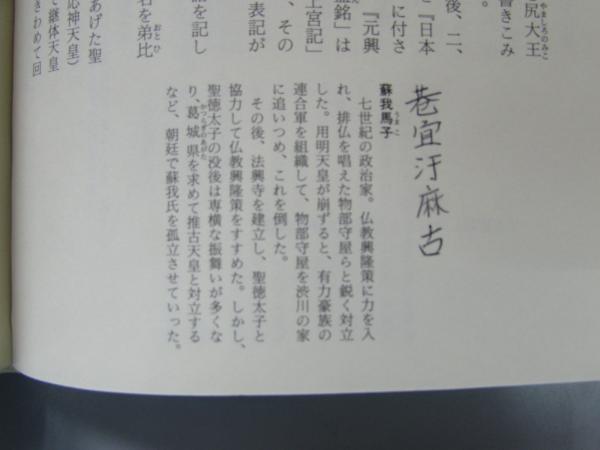 尻大王
やましろのみこ
書きこみ
。
後、二、
と『日本
に付さ
『元興
盤銘」は
上宮記」
、その
表記が
品を記し
おとひ
名を弟比
あげた聖
応神天皇)
で継体天皇
きわめて回
巷宜汙麻古
蘇我馬子
うまこ
七世紀の政治家。仏教興隆策に力を入
れ、排仏を唱えた物部守屋らと鋭く対立
した。用明天皇が崩ずると、有力豪族の
連合軍を組織して、物部守屋を渋川の家
に追いつめ、これを倒した。
その後、法興寺を建立し、聖徳太子と
協力して仏教興隆策をすすめた。しかし、
聖徳太子の没後は専横な振舞いが多くな
り、葛城県を求めて推古天皇と対立する
かつらぎのあがた
など、朝廷で蘇我氏を孤立させていった。